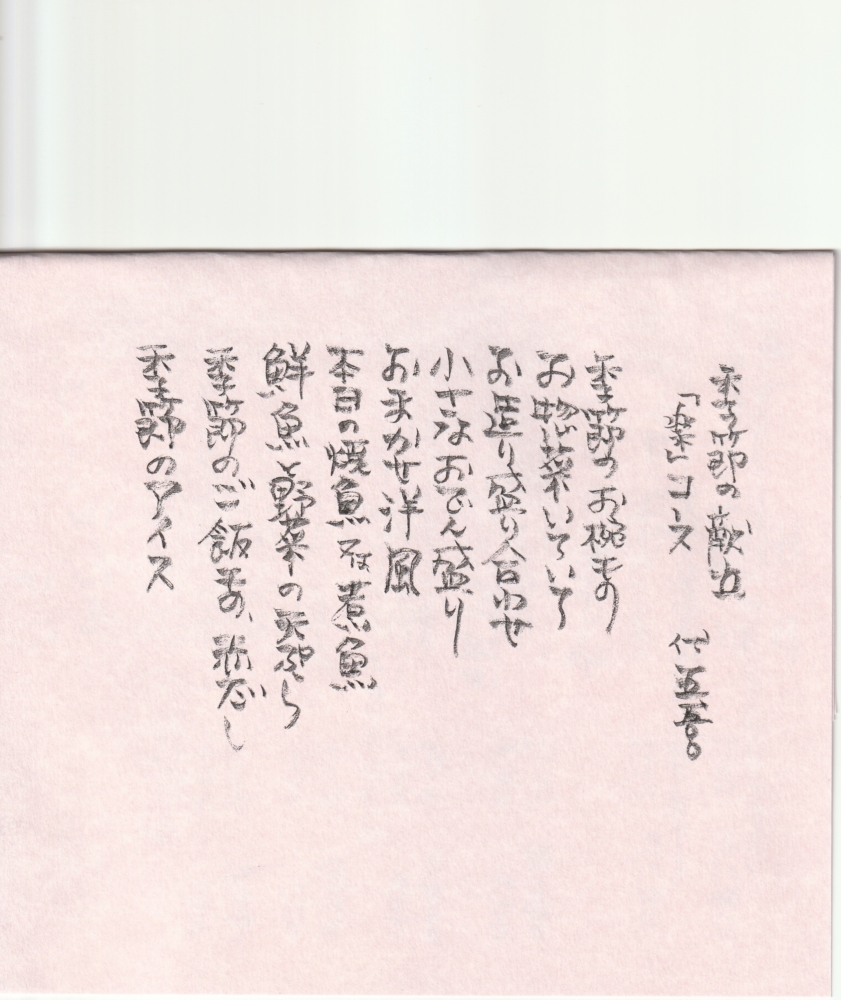 季節の献立
「楽」コース 代五、五〇〇
季節のお椀もの
お惣菜いろいろ
お造り盛り合わせ
小さなおでん盛り
おまかせ洋風
本日の焼魚又は煮魚
鮮魚と野菜の天ぷら
季節のご飯もの、赤だし
季節のアイス